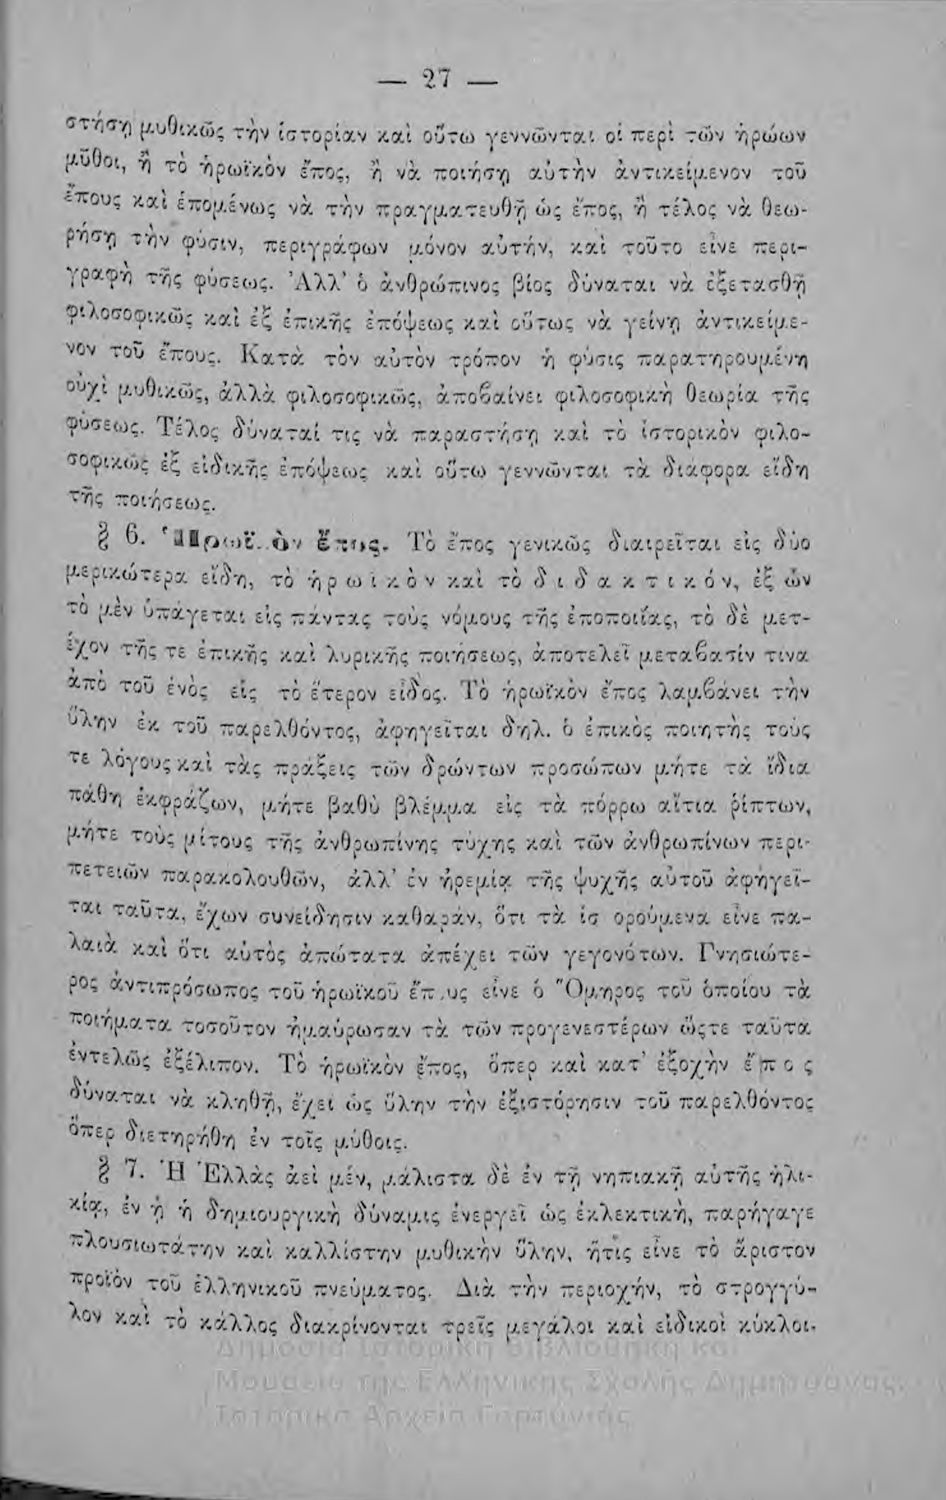 — 27 —
στήσῃ μυθικῶς τὴν ἱστορίαν καὶ οὕτω γεννῶνται οἱ περὶ τῶν ἡρώων
μῦθοι, ἢ τὸ ἡρωϊκὸν ἔπος, ἢ νὰ ποιήσῃ αὐτὴν ἀντικείμενον τοῦ
ἔπους καὶ ἑπομένως νὰ τὴν πραγματευθῇ ὡς ἔπος, ἢ τέλος νὰ θεω-
ρήσῃ τὴν φύσιν, περιγράφων μόνον αὐτήν, καὶ τοῦτο εἶνε περι-
γραφὴ τῆς φύσεως. Ἀλλ' ὁ ἀνθρώπινος βίος δύναται νὰ ἐξετασθῇ
φιλοσοφικῶς καὶ ἐξ ἐπικῆς ἐπόψεως καὶ οὕτως νὰ γείνῃ ἀντικείμε-
νον τοῦ ἔπους. Κατὰ τὸν αὐτὸν τρόπον ἡ φύσις παρατηρουμένη
οὐχὶ μυθικῶς, ἀλλὰ φιλοσοφικῶς, ἀποβαίνει φιλοσοφικὴ θεωρία τῆς
φύσεως. Τέλος δύναταί τις νὰ παραστήσῃ καὶ τὸ ἱστορικὸν φιλο-
σοφικῶς ἐξ εἰδικῆς ἐπόψεως καὶ οὕτω γεννῶνται τὰ διάφορα εἴδη
τῆς ποιήσεως.
§ 6. Ἡρωϊκὸν ἔπος. Τὸ ἔπος γενικῶς διαιρεῖται εἰς δύο
μερικώτερα εἴδη, τὸ ἡρωϊκὸν καὶ τὸ διδακτικόν, ἐξ ὧν
τὸ μὲν ὑπάγεται εἰς πάντας τοὺς νόμους τῆς ἐποποιΐας, τὸ δὲ μετ-
έχον τῆς τε ἐπικῆς καὶ λυρικῆς ποιήσεως, ἀποτελεῖ μεταβασίν τινα
ἀπὸ τοῦ ἑνὸς εἰς τὸ ἕτερον εἶδος. Τὸ ἡρωϊκὸν ἔπος λαμβάνει τὴν
ὕλην ἐκ τοῦ παρελθόντος, ἀφηγεῖται δηλ. ὁ ἐπικὸς ποιητὴς τούς
τε λόγους καὶ τὰς πράξεις τῶν δρώντων προσώπων μήτε τὰ ἴδια
πάθη ἐκφράζων, μήτε βαθὺ βλέμμα εἰς τὰ πόρρω αἴτια ῥίπτων,
μήτε τοὺς μίτους τῆς ἀνθρωπίνης τύχης καὶ τῶν ἀνθρωπίνων περι-
πετειῶν παρακολουθῶν, ἀλλ' ἐν ἠρεμίᾳ τῆς ψυχῆς αὐτοῦ ἀφηγεῖ-
ται ταῦτα, ἔχων συνείδησιν καθαράν, ὅτι τὰ ἱσ ορούμενα εἶνε πα-
λαιὰ καὶ ὅτι αὐτὸς ἀπώτατα ἀπέχει τῶν γεγονότων. Γνησιώτε-
ρος ἀντιπρόσωπος τοῦ ἡρωϊκοῦ ἔπους εἶνε ὁ Ὅμηρος τοῦ ὁποίου τὰ
ποιήματα τοσοῦτον ἠμαύρωσαν τὰ τῶν προγενεστέρων ὥςτε ταῦτα
ἐντελῶς ἐξέλιπον. Τὸ ἡρωϊκὸν ἔπος, ὅπερ καὶ κατ' ἐξοχὴν ἔπος
δύναται νὰ κληθῇ, ἔχει ὡς ὕλην τὴν ἐξιστόρησιν τοῦ παρελθόντος
ὅπερ διετηρήθη ἐν τοῖς μύθοις.
§ 7. Ἡ Ἑλλὰς ἀεὶ μέν, μάλιστα δὲ ἐν τῇ νηπιακῇ αὐτῆς ἡλι-
κίᾳ, ἐν ᾗ ἡ δημιουργικὴ δύναμις ἐνεργεῖ ὡς ἐκλεκτική, παρήγαγε
πλουσιωτάτην καὶ καλλίστην μυθικὴν ὕλην, ἥτις εἶνε τὸ ἄριστον
προϊὸν τοῦ ἑλληνικοῦ πνεύματος. Διὰ τὴν περιοχήν, τὸ στρογγύ-
λον καὶ τὸ κάλλος διακρίνονται τρεῖς μεγάλοι καὶ εἰδικοὶ κύκλοι·
Δημόσια Ιστορική Βιβλιοθήκη και
Μουσείο της Ελληνικής Σχολής Δημητσάνας.
Ιστορικό Αρχείο Γορτυνίας